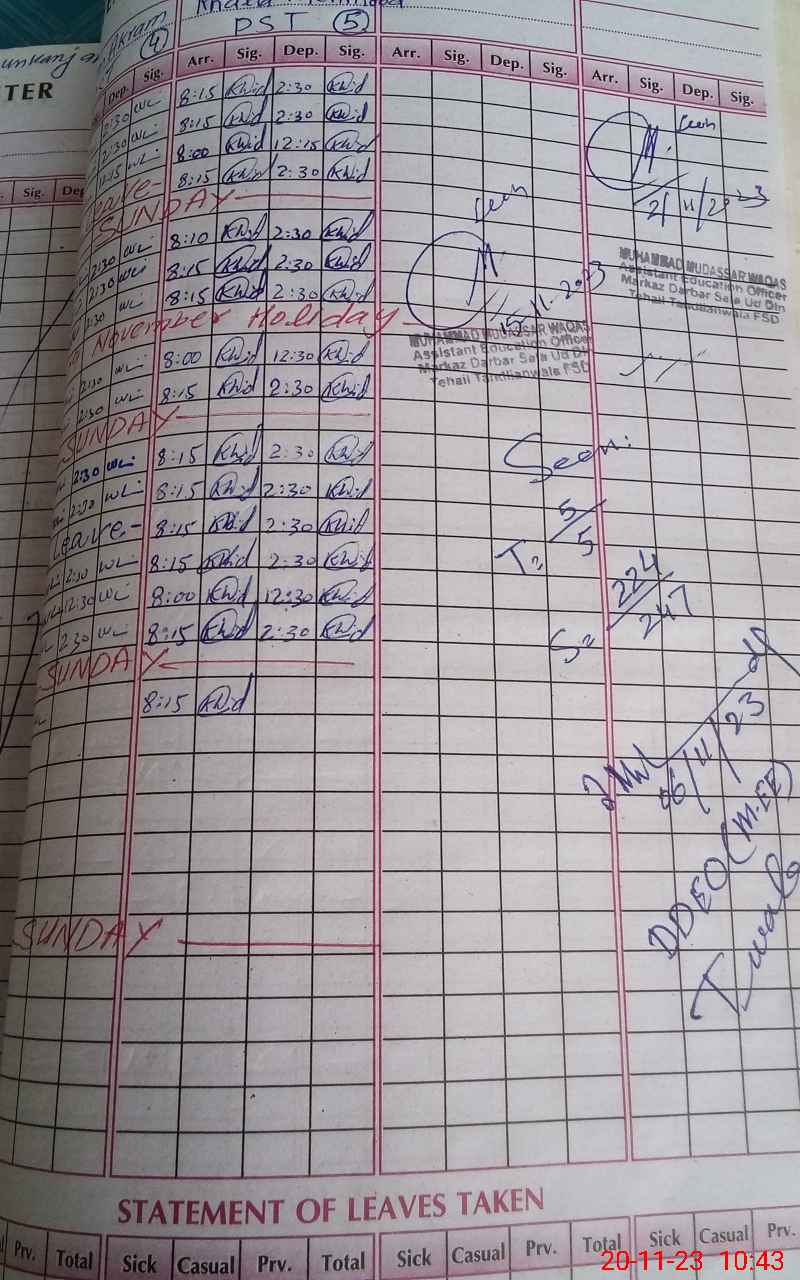 Akram
PST 5
4
TER
Dep. Sig. Arr. Sig. Dep. Sig. Arr. Sig. Dep. Sig. Arr. Sig. Dep. Sig.
Sig.
2:30 WL 8:15 Khid 2:30 Khid
2:30 WL 8:15 Khid 2:30 Khid
11:15 WL 8:00 Khid 12:15 Khid
Leave- 8:15 Khid 2:30 Khid
SUNDAY
2:30 WL 8:10 Khid 2:30 Khid
2:30 WL 8:15 Khid 2:30 Khid
2:30 WL 8:15 Khid 2:30 Khid
November Holiday
2:30 WL 8:00 Khid 12:30 Khid
2:30 WL 8:15 Khid 2:30 Khid
SUNDAY
2:30 WL 8:15 Khid 2:30 Khid
2:30 WL 8:15 Khid 2:30 Khid
Leave- 8:15 Khid 2:30 Khid
2:30 WL 8:15 Khid 2:30 Khid
12:30 WL 8:00 Khid 12:30 Khid
2:30 WL 8:15 Khid 2:30 Khid
SUNDAY
8:15 Khid
SUNDAY
Seen
15-11-2023
MUHAMMAD MUDASSAR WAQAS
Assistant Education Officer
Markaz Darbar Saja Ud Din
Tehail Tandlianwala FSD
Seen
21/11/2023
MUHAMMAD MUDASSAR WAQAS
Assistant Education Officer
Markaz Darbar Saja Ud Din
Tehail Tandlianwala FSD
Seen.
T= 5/5
S= 224/247
06/11/23
DDEO (M-EE)
T wala
STATEMENT OF LEAVES TAKEN
Prv. Total Sick Casual Prv. Total Sick Casual Prv. Total Sick Casual Prv.
20-11-23 10:43